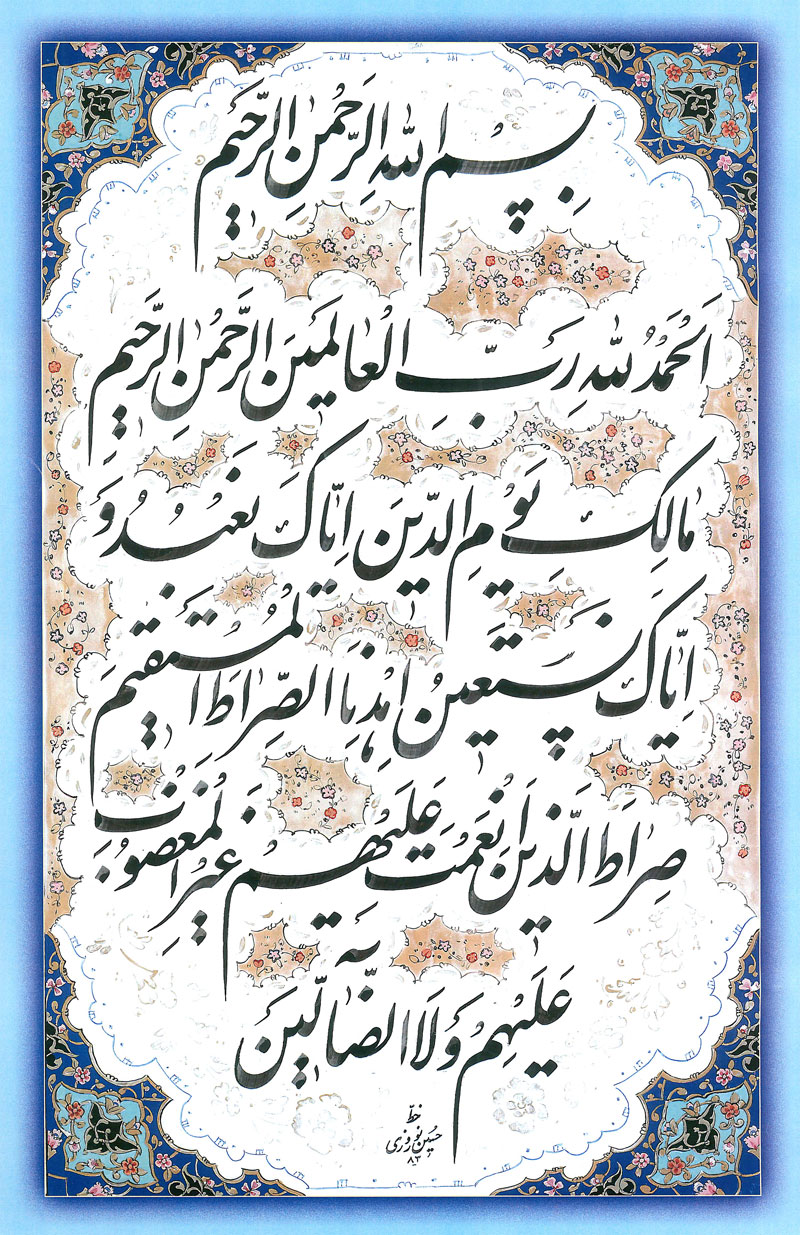 بِسْمِ اللهِ الرَّحْمٰنِ الرَّحیٖمِ
اَلْحَمْدُ لِلّٰهِ رَبِّ الْعٰالَمیٖنَ الرَّحْمٰنِ الرَّحیٖمِ
مٰالِكِ یَوْمِ الدّیٖنِ اِیّٰاكَ نَعْبُدُ وَ
اِیّٰاكَ نَسْتَعیٖنُ اِهْدِنَا الصِّرٰاطَ الْمُسْتَقیٖمَ
صِرٰاطَ الَّذیٖنَ اَنْعَمْتَ عَلَیْهِمْ غَیْرِ الْمَغْضُوبِ
عَلَیْهِمْ وَلَا الضّٰالّیٖنَ
خط
حسین نوروزی
۸۳